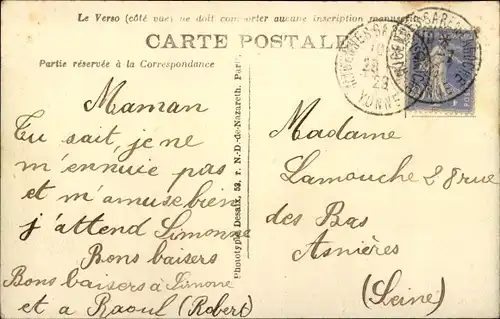 Le Verso (côté vue) ne doit comporter aucune inscription manuscrite
CARTE POSTALE
Partie réservée à la Correspondance
Maman
Tu sait, je ne
m'ennuie pas
et m'amuse bien
j'attend Simonne
Bons baisers
Bons baisers à Simone
et a Raoul (Robert)
Phototypie Desaix, 53, r. N.-D.-de-Nazareth. Paris
YONNE
YONNE
Madame
Lamouche 28 rue
des Bas
Asnières
(Seine)